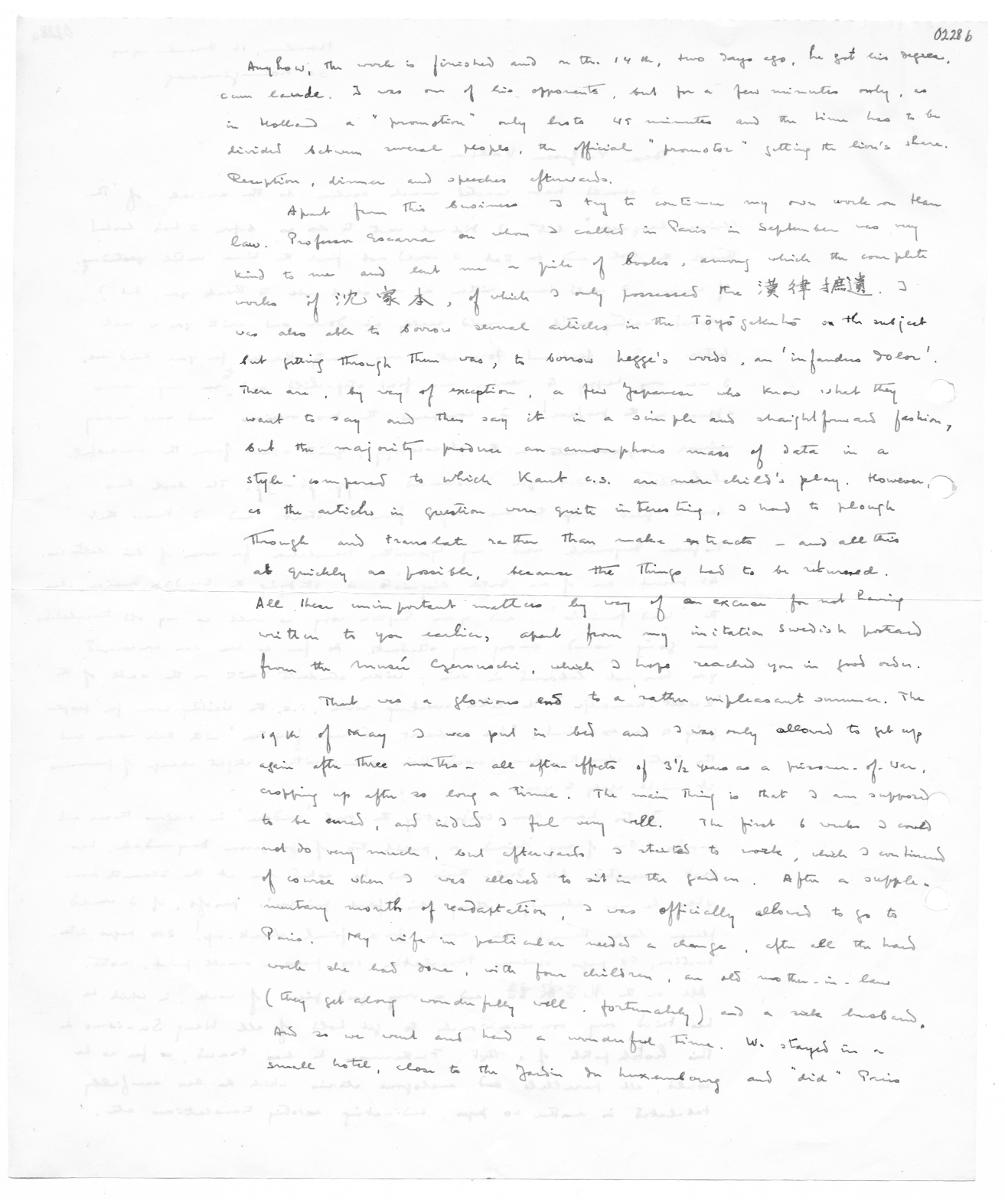 0228b
Anyhow, the work is finished and on the 14th, two days ago, he got his degree,
cum laude. I was one of his opponents, but for a few minutes only, as
in Holland a "promotion" only lasts 45 minutes and the time has to be
divided between several people, the official "promotor" getting the lion's share.
Reception, dinner and speeches afterwards.
Apart from this business I try to continue my own work on Han
law. Professor Escarra on whom I called in Paris in September was very
kind to me and lent me a pile of books, among which the complete
works of 沈家本, of which I only possessed the 漢律摭遺. I
was also able to borrow several articles in the Tōyōgakuhō on the subject
but getting through them was, to borrow Legge's words, an 'infandus dolor'.
There are, by way of exception, a few Japanese who know what they
want to say and then say it in a simple and straightforward fashion,
but the majority produce an amorphous mass of data in a
style compared to which Kant c.s. are mere child's play. However,
as the articles in question were quite interesting, I had to plough
through and translate rather than make extracts – and all this
as quickly as possible, because the things had to be returned.
All these unimportant matters by way of an excuse for not having
written to you earlier, apart from my imitation Swedish postcard
from the Musée Czernuschi, which I hope reached you in good order.
That was a glorious end to a rather unpleasant summer. The
19th of May I was put in bed and I was only allowed to get up
again after three months – all after-effects of 3½ years as a prisoner-of-war,
cropping up after so long a time. The main thing is that I am supposed
to be cured, and indeed I feel very well. The first 6 weeks I could
not do very much, but afterwards I started to work, which I continued
of course when I was allowed to sit in the garden. After a supple-
mentary month of readaptation, I was officially allowed to go to
Paris. My wife in particular needed a change, after all the hard
work she had done, with four children, an old mother-in-law
(they get along wonderfully well, fortunately) and a sick husband.
And so we went and had a wonderful time. We stayed in a
small hotel, close to the Jardin du Luxembourg and "did" Paris